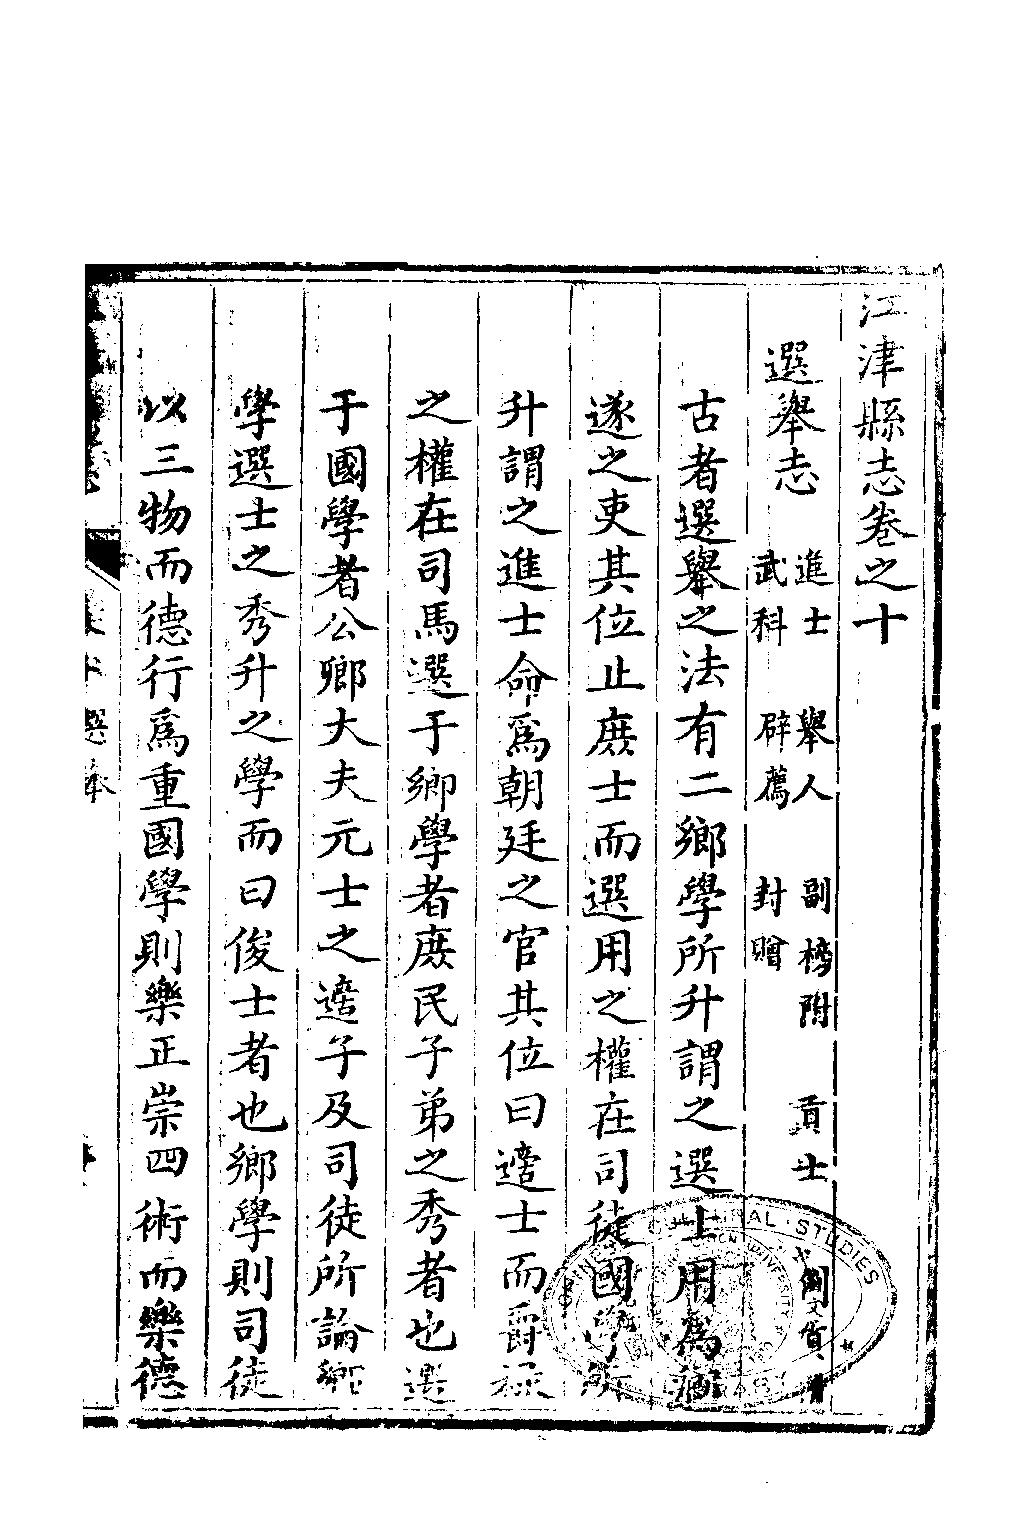 江津縣志卷之十
選舉志
進士 舉人 副榜附 貢士
武科 辟薦 封贈
古者選舉之法有二鄉學所升謂之選士用爲鄉
遂之吏其位止庶士而選用之權在司徒國學所
升謂之進士命爲朝廷之官其位曰適士而爵祿
之權在司馬選于鄉學者庶民子弟之秀者也選
于國學者公卿大夫元士之適子及司徒所論鄉
學選士之秀升之學而曰俊士者也鄉學則司徒
以三物而德行爲重國學則樂正崇四術而樂德
選舉
STUDIES